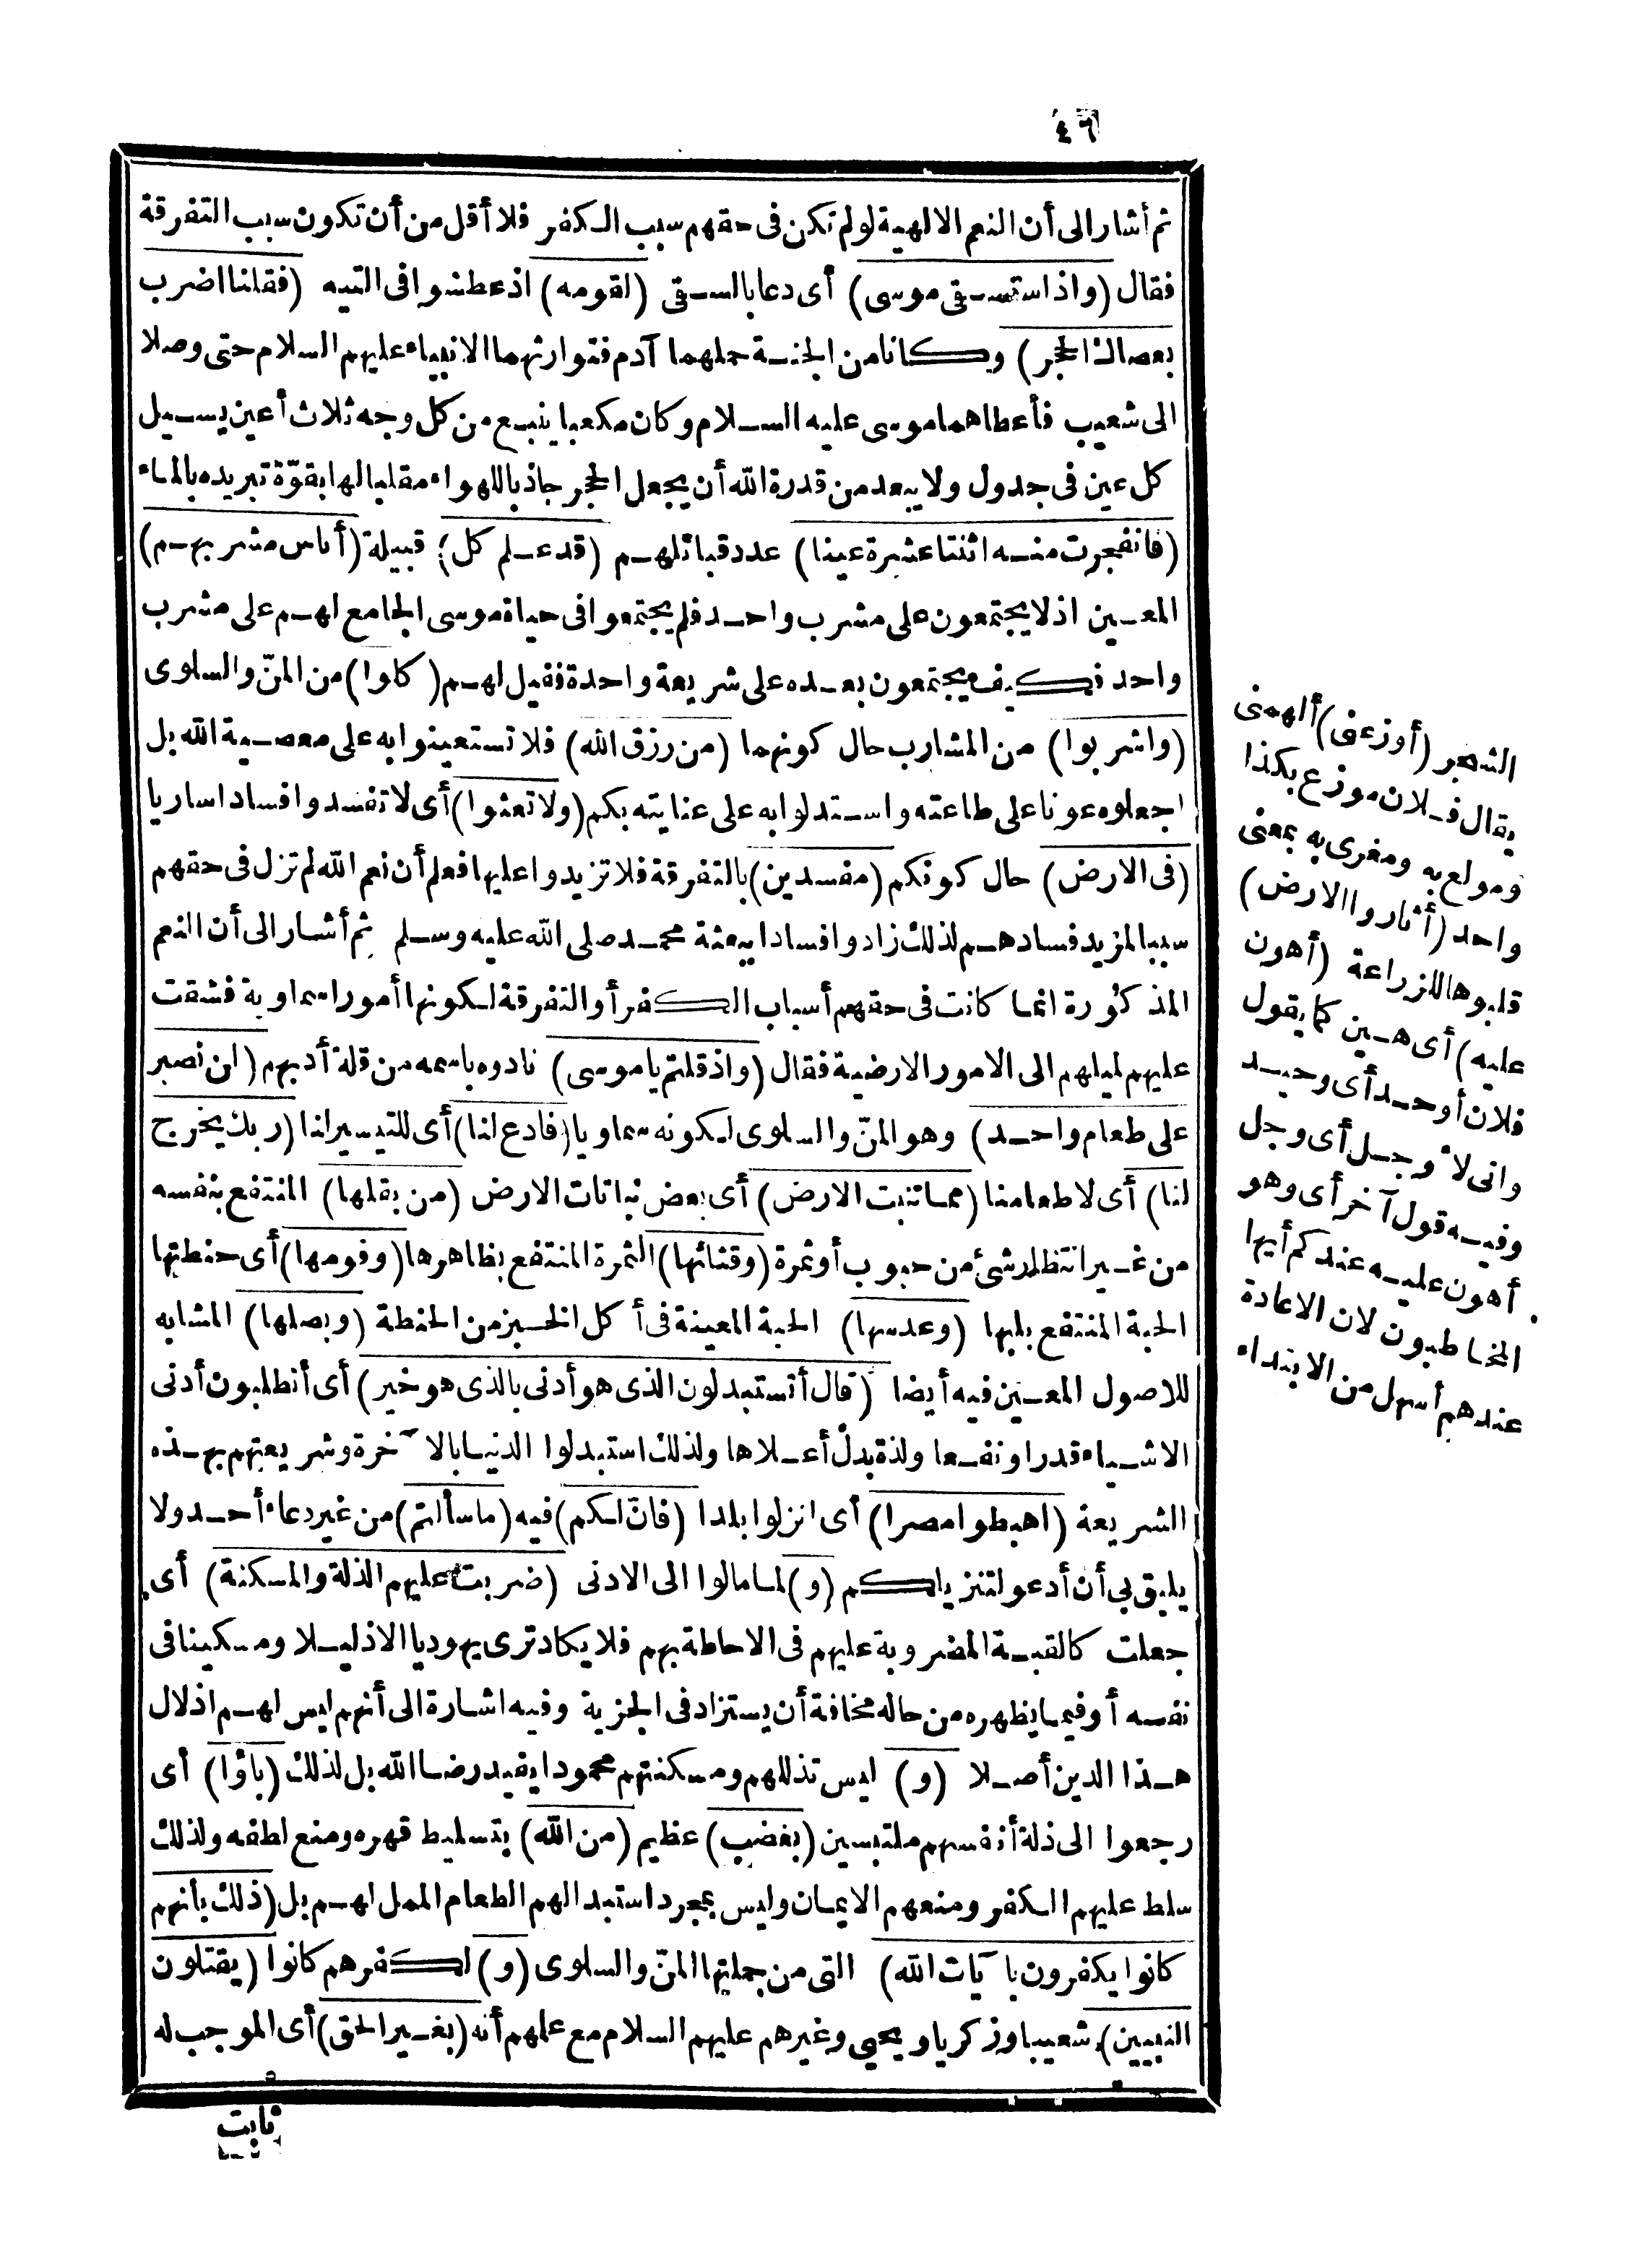 ٤٦
ثم أشار الى أن النعم الالهية لو لم تكن فى حقهم سبب الكفر فلا أقل من أن تكون سبب التفرقة
فقال (واذ استسقى موسى) أى دعا بالسقى (لقومه) اذ عطشوا فى التيه (فقلنا اضرب
بعصاك الحجر) وكانا من الجنة حملهما آدم فتوارثهما الانبياء عليهم السلام حتى وصلا
الى شعيب فأعطاهما موسى عليه السلام وكان مكعبا ينبع من كل وجه ثلاث أعين يسيل
كل عين فى جدول ولا يبعد من قدرة الله أن يجعل الحجر جاذبا للهواء مقلبا لها بقوّة تبريده بالماء
(فانفجرت منه اثنتا عشرة عينا) عدد قبائلهم (قد علم كل) قبيلة (أناس مشربهم)
المعين اذ لا يجتمعون على مشرب واحد فلم يجتمعوا فى حياة موسى الجامع لهم على مشرب
واحد فكيف يجتمعون بعده على شريعة واحدة فقيل لهم (كلوا) من المنّ والسلوى
(واشربوا) من المشارب حال كونهما (من رزق الله) فلا تستعينوا به على معصية الله بل
اجعلوه عونا على طاعته واستدلوا به على عنايته بكم (ولا تعثوا) أى لا تفسدوا افسادا ساريا
(فى الارض) حال كونكم (مفسدين) بالتفرقة فلا تزيدوا عليها فعلم أن نعم الله لم تزل فى حقهم
سببا لمزيد فسادهم لذلك زادوا فسادا ببعثة محمد صلى الله عليه وسلم ثم أشار الى أن النعم
المذكورة انما كانت فى حقهم أسباب الكفر أو التفرقة لكونها أمورا سماوية فشقت
عليهم لميلهم الى الامور الارضية فقال (واذ قلتم يا موسى) نادوه باسمه من قلة أدبهم (لن نصبر
على طعام واحد) وهو المنّ والسلوى لكونه سماويا (فادع لنا) أى للتيسير لنا (ربك يخرج
لنا) أى لاطعامنا (مما تنبت الارض) أى بعض نباتات الارض (من بقلها) المنتفع بنفسه
من غير انتظار شئ من حبوب أو ثمرة (وقثائها) الثمرة المنتفع بظاهرها (وفومها) أى حنطتها
الحبة المنتفع بلبها (وعدسها) الحبة المعينة فى أكل الخبز من الحنطة (وبصلها) المشابه
للاصول المعين فيه أيضا (قال أتستبدلون الذى هو أدنى بالذى هو خير) أى أتطلبون أدنى
الاشياء قدرا ونفعا ولذة بدل أعلاها ولذلك استبدلوا الدنيا بالآخرة وشريعتهم بهذه
الشريعة (اهبطوا مصرا) أى انزلوا بلدا (فانّ لكم) فيه (ما سألتم) من غير دعاء أحد ولا
يليق بى أن أدعو لتنزيلكم (و) لما مالوا الى الادنى (ضربت عليهم الذلة والمسكنة) أى
جعلت كالقبة المضروبة عليهم فى الاحاطة بهم فلا يكاد ترى يهوديا الا ذليلا ومسكينا فى
نفسه أو فيما يظهره من حاله مخافة أن يستزاد فى الجزية وفيه اشارة الى أنهم ليس لهم اذلال
هذا الدين أصلا (و) ليس تذللهم ومسكنتهم محمودا يفيد رضا الله بل لذلك (باؤا) أى
رجعوا الى ذلة أنفسهم ملتبسين (بغضب) عظيم (من الله) بتسليط قهره ومنع لطفه ولذلك
سلط عليهم الكفر ومنعهم الايمان وليس بمجرد استبدالهم الطعام الممل لهم بل (ذلك بأنهم
كانوا يكفرون بآيات الله) التى من جملتها المنّ والسلوى (و) لكفرهم كانوا (يقتلون
النبيين) شعيبا وزكريا ويحيى وغيرهم عليهم السلام مع علمهم أنه (بغير الحق) أى الموجب له
ثابت
الشهر (أوزعنى) ألهمنى
يقال فلان موزع بكذا
ومولع به ومغرى به بمعنى
واحد (أثاروا الارض)
قلبوها للزراعة (أهون
عليه) أى هين كما يقول
فلان أوحد أى وحيد
وانى لاوجل أى وجل
وفيه قول آخر أى وهو
أهون عليه عندكم أيها
المخاطبون لان الاعادة
عندهم أسهل من الابتداء